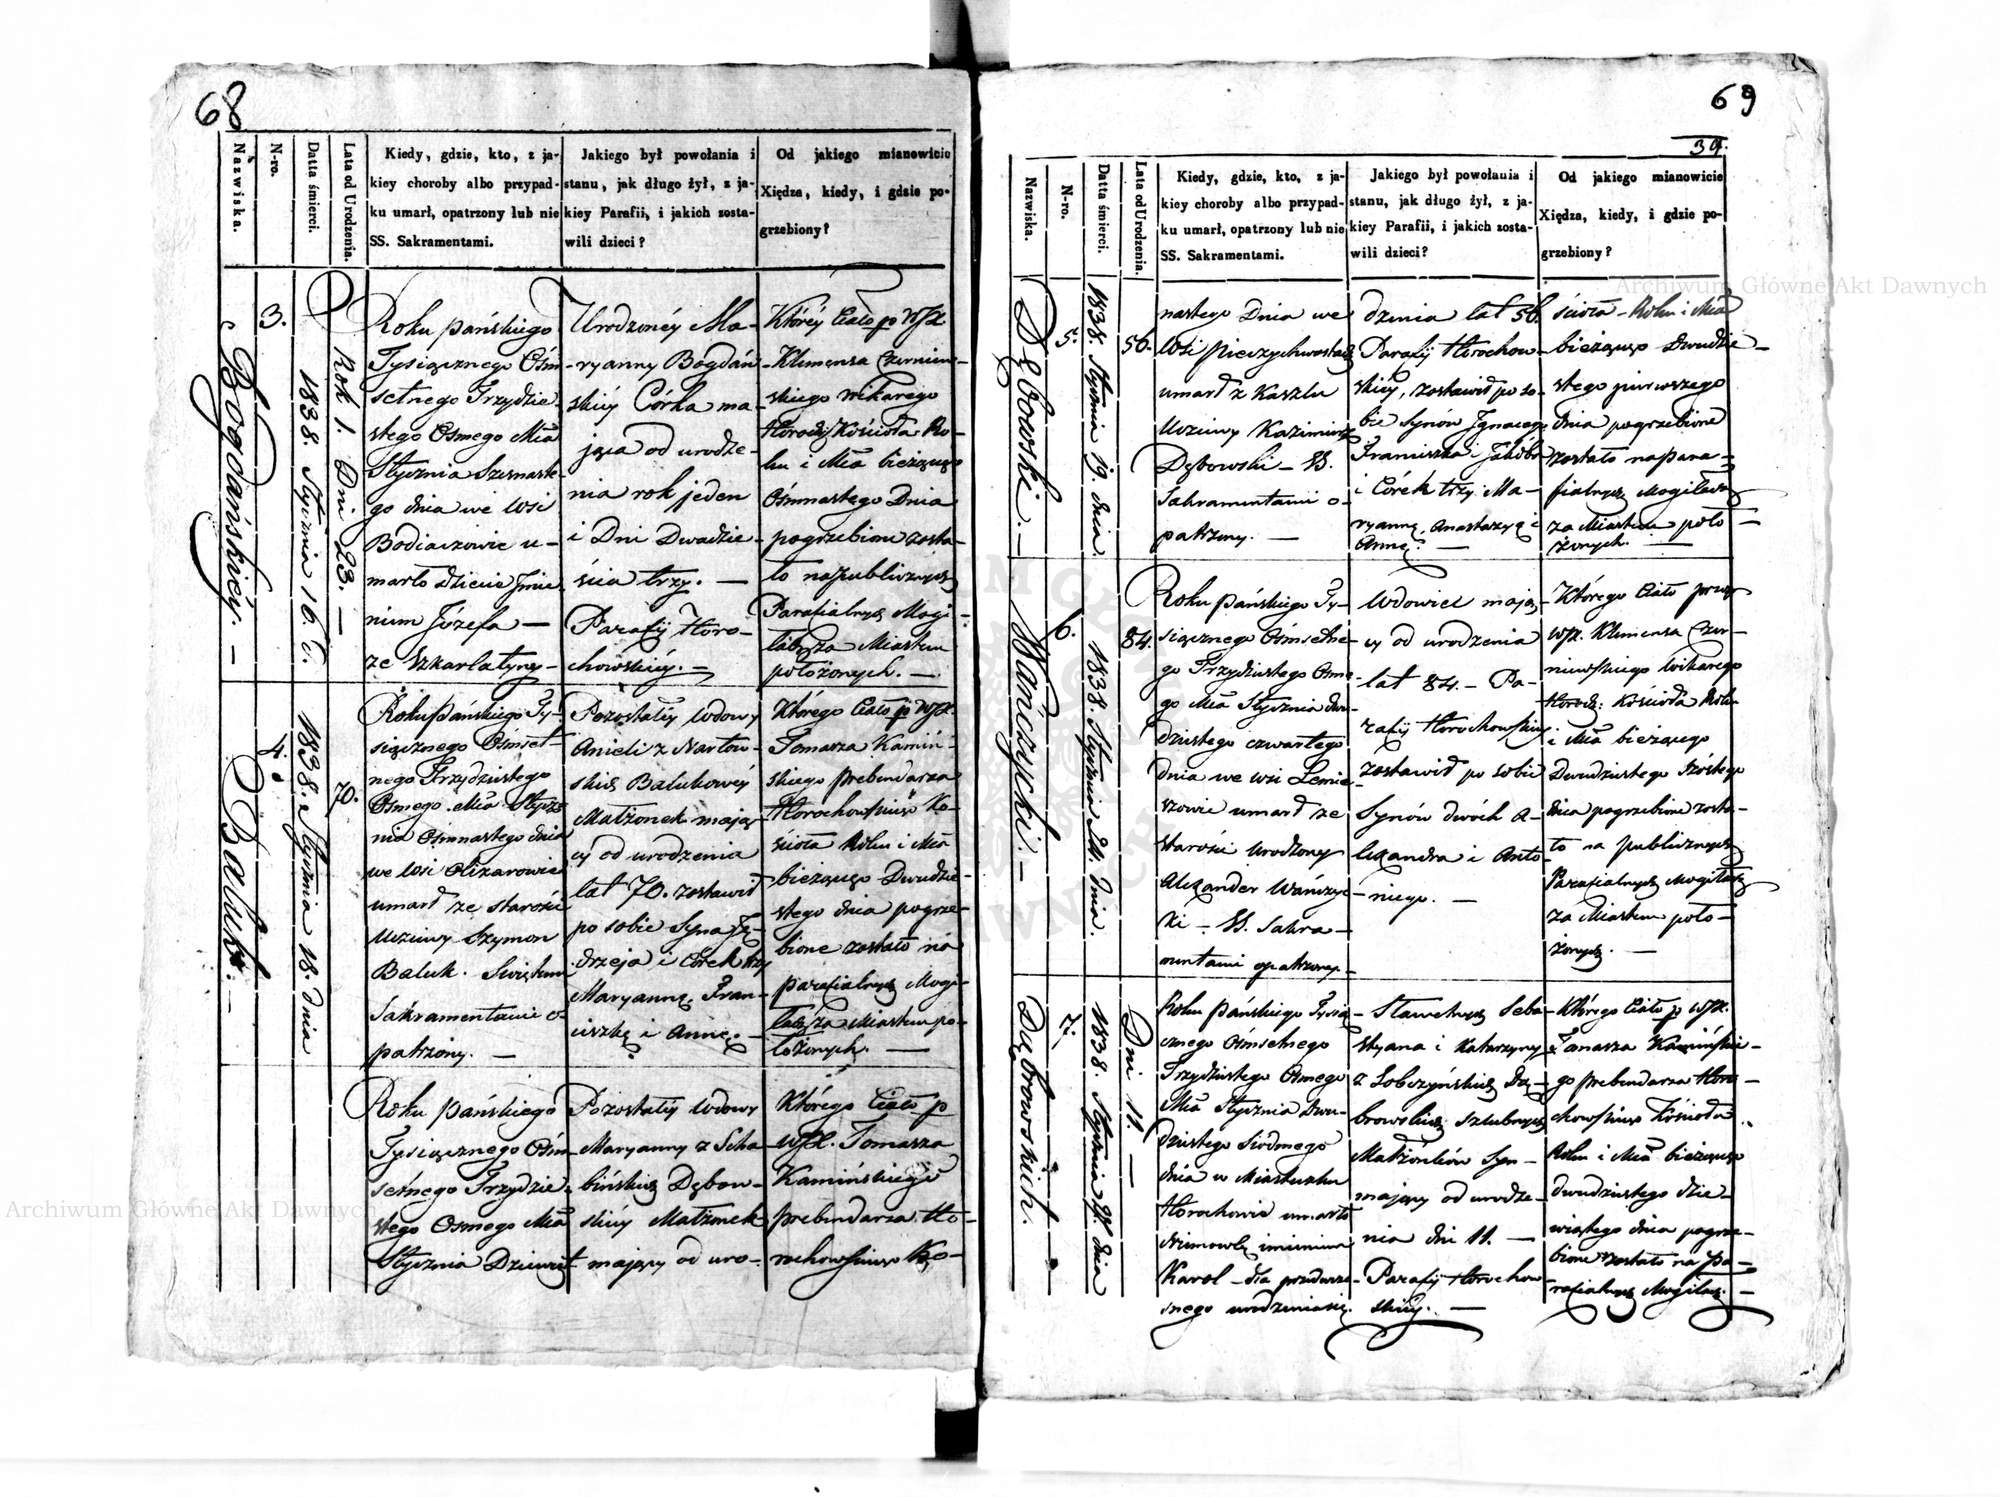 68
Nazwiska.
N-ro.
Datta śmierci.
Lata od Urodzenia.
Kiedy, gdzie, kto, z ja-
kiey choroby albo przypad-
ku umarł, opatrzony lub nie
SS. Sakramentami.
Jakiego był powołania i
stanu, jak długo żył, z ja-
kiey Parafii, i jakich zosta-
wili dzieci?
Od jakiego mianowicie
Xiędza, kiedy, i gdzie po-
grzebiony?
Bogdańskiéj. —
3.
1838. Stycznia 16. d.
Rok 1. Dni 23. —
Roku pańskiego
Tysiącznego Ośm
setnego Trzydzie-
stego Osmego Mca
Stycznia Szesnaste-
go dnia we Wsi
Bodiaczowie u-
marło dziecie Jmie-
niem Józefa —
ze Szkarlatyny —
Urodzonéy Ma-
ryanny Bogdań
skiéy Córka ma-
jąca od urodze-
nia rok jeden
i Dni Dwadzie-
ścia trzy. —
Parafij Horo-
chowskiéy. —
Któréy Ciało p WJX.
Klemensa Czerniew-
skiego wikarego
Horoch: Kościoła Ro-
ku i Mca bieżącego
Ośmnastego Dnia
pogrzebione zosta-
ło na publicznych
Parafialnych Mogi-
łach za Miastem
położonych. —
Baluk. —
4.
1838. Stycznia 18 dnia
70.
Roku pańskiego Ty-
siącznego Ośmset-
nego Trzydziestego
Osmego Mca Stycz-
nia Ośmnastego dnia
we Wsi Olizarowie
umarł ze starości
Uczciwy Szymon
Baluk. Swiętemi
Sakramentami o-
patrzony. —
Pozostałéy Wdowy
Anieli z Nartow-
skich Balukowéy
Małżonek mają-
cy od urodzenia
lat 70. zostawił
po sobie Syna Ję-
drzeja i Córek trzy
Maryannę, Fran-
ciszkę i Annę. —
Którego Ciało p WJX.
Tomasza Kamiń-
skiego prebendarza
Horochowskiego Ko-
ścioła Roku i Mca
bieżącego Dwudzie-
stego dnia pogrze-
bione zostało na
parafialnych Mogi-
łach za Miastem po-
łożonych. —
Roku pańskiego
Tysiącznego Ośm
setnego Trzydzie-
stego Osmego Mca
Stycznia Dziewięt-
Pozostałéy Wdowy
Maryanny z
bińskich Dębow-
skiéy Małżonek
mający od uro-
Którego Ciało p
WJX. Tomasza
Kamińskiego
prebendarza Ho-
rochowskiego Ko-
69
39.
Nazwiska.
N-ro.
Datta śmierci.
Lata od Urodzenia.
Kiedy, gdzie, kto, z ja-
kiey choroby albo przypad-
ku umarł, opatrzony lub nie
SS. Sakramentami.
Jakiego był powołania i
stanu, jak długo żył, z ja-
kiey Parafii, i jakich zosta-
wili dzieci?
Od jakiego mianowicie
Xiędza, kiedy, i gdzie po-
grzebiony?
Dębowski. —
5.
1838. Stycznia 19. dnia.
56.
nastego Dnia we
Wsi
umarł z Kaszlu
Uczciwy Kazimierz
Dębowski — SS.
Sakramentami o-
patrzony. —
dzenia lat 56.
Parafij Horochow-
skiéy, zostawił po so-
bie Synów Jgnacego
Franciszka i Jakóba
i Córek trzy Ma-
ryannę, Anastazyą i
Annę. —
ścioła — Roku i Mca
bieżącego Dwudzie-
stego pierwszego
dnia pogrzebione
zostało na para-
fialnych Mogiłach
za Miastem poło-
żonych. —
Wańczycki. —
6.
1838. Stycznia 24. Dnia.
84.
Roku Pańskiego Ty-
siącznego Ośmsetne-
go Trzydziestego Osme-
go Mca Stycznia dwu-
dziestego czwartego
dnia we wsi Lemie-
szowie umarł ze
starości Urodzony
Alexander Wańczyc-
ki — SS. Sakra-
mentami opatrzony —
Wdowiec mają-
cy od urodzenia
lat 84. — Pa-
rafij Horochowskiéy
zostawił po sobie
Synów dwóch A-
lexandra i Anto-
niego. —
Którego Ciało przez
WJX. Klemensa Czer-
niewskiego Wikarego
Horoch: Kościoła Roku
i Mca bieżącego
Dwudziestego Szóstego
dnia pogrzebione zosta-
ło na publicznych
Parafialnych Mogiłach
za Miastem poło-
żonych. —
Dąbrowskich.
7.
1838. Stycznia 27. dnia
Dni 11. —
Roku pańskiego Tysią-
cznego Ośmsetnego
Trzydziestego Osmego
Mca Stycznia Dwu-
dziestego siódmego
dnia w Miasteczku
Horochowie umarło
Niemowlę imieniem
Karol — dla przedwcze-
snego urodzenia się.
Sławetnych Seba-
styana i Katarzyny
z Sobczyńskich Dą-
browskich szlubnych
Małżonków Syn —
mający od urodze-
nia dni 11. —
Parafij Horochow-
skiéy. —
Którego Ciało p WJX.
Tomasza Kamińskie-
go prebendarza Horo-
chowskiego Kościoła
Roku i Mca bieżącego
dwudziestego dzie-
wiątego dnia pogrze-
bione zostało na pa-
rafialnych Mogiłach. —
Archiwum Główne Akt Dawnych
Archiwum Główne Akt Dawnych